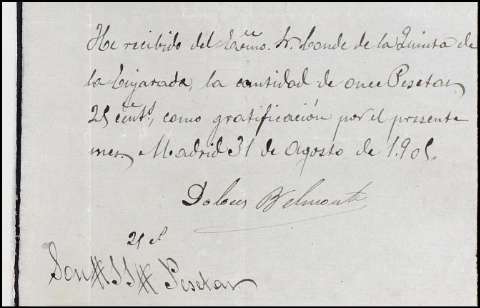 He recibido del Excmo. Sr. Conde de la Quinta de
la Enjarada, la cantidad de once Pesetas
25 cents, como gratificación por el presente
mes. Madrid 31 de Agosto de 1.905.
Dolores Belmonte
25 c
Son # 11 # Pesetas